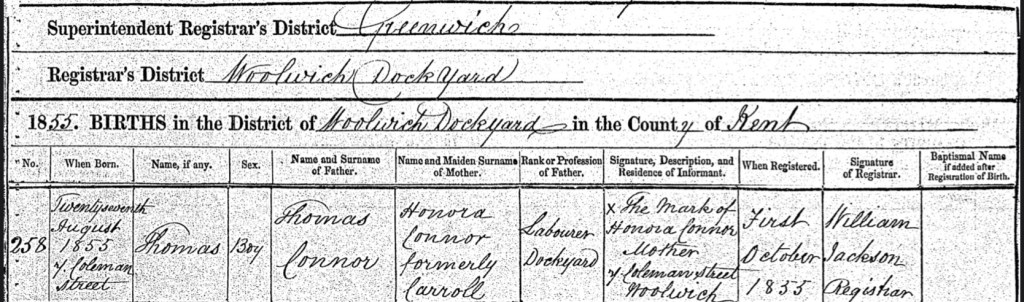 Superintendent Registrar's District Greenwich
Registrar's District Woolwich Dockyard
1855. BIRTHS in the District of Woolwich Dockyard in the County of Kent
No. When Born. Name, if any. Sex. Name and Surname of Father. Name and Maiden Surname of Mother. Rank or Profession of Father. Signature, Description, and Residence of Informant. When Registered. Signature of Registrar. Baptismal Name if added after Registration of Birth.
258
Twentyseventh
August
1855
7. Coleman
Street
Thomas
Boy
Thomas
Connor
Honora
Connor
formerly
Carroll
Labourer
Dockyard
X The Mark of
Honora Connor
Mother
7 Coleman Street
Woolwich
First
October
1855
William
Jackson
Registrar